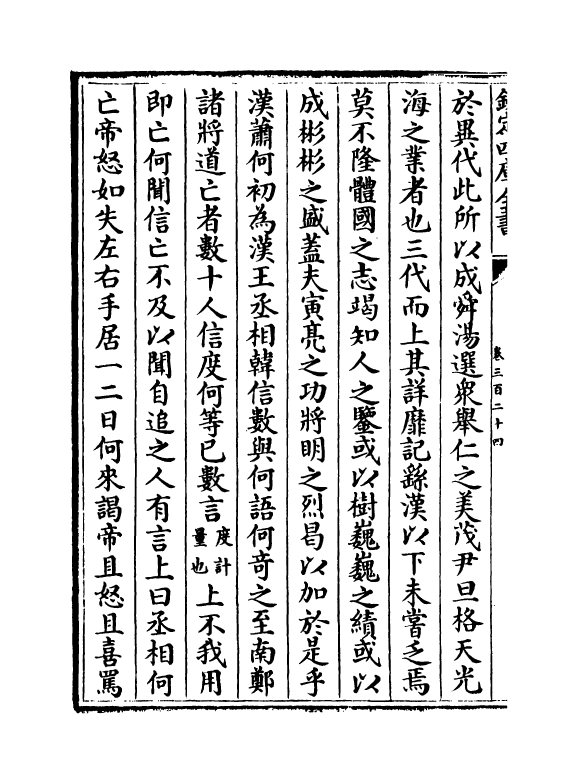 欽定四庫全書
卷三百二十四
於異代此所以成舜湯選衆舉仁之美茂尹旦格天光
海之業者也三代而上其詳靡記繇漢以下未嘗乏焉
莫不隆體國之志竭知人之鑒或以樹巍巍之績或以
成彬彬之盛蓋夫寅亮之功將明之烈曷以加於是乎
漢蕭何初為漢王丞相韓信數與何語何奇之至南鄭
諸將道亡者數十人信度何等已數言度計量也上不我用
即亡何聞信亡不及以聞自追之人有言上曰丞相何
亡帝怒如失左右手居一二日何來謁帝且怒且喜罵